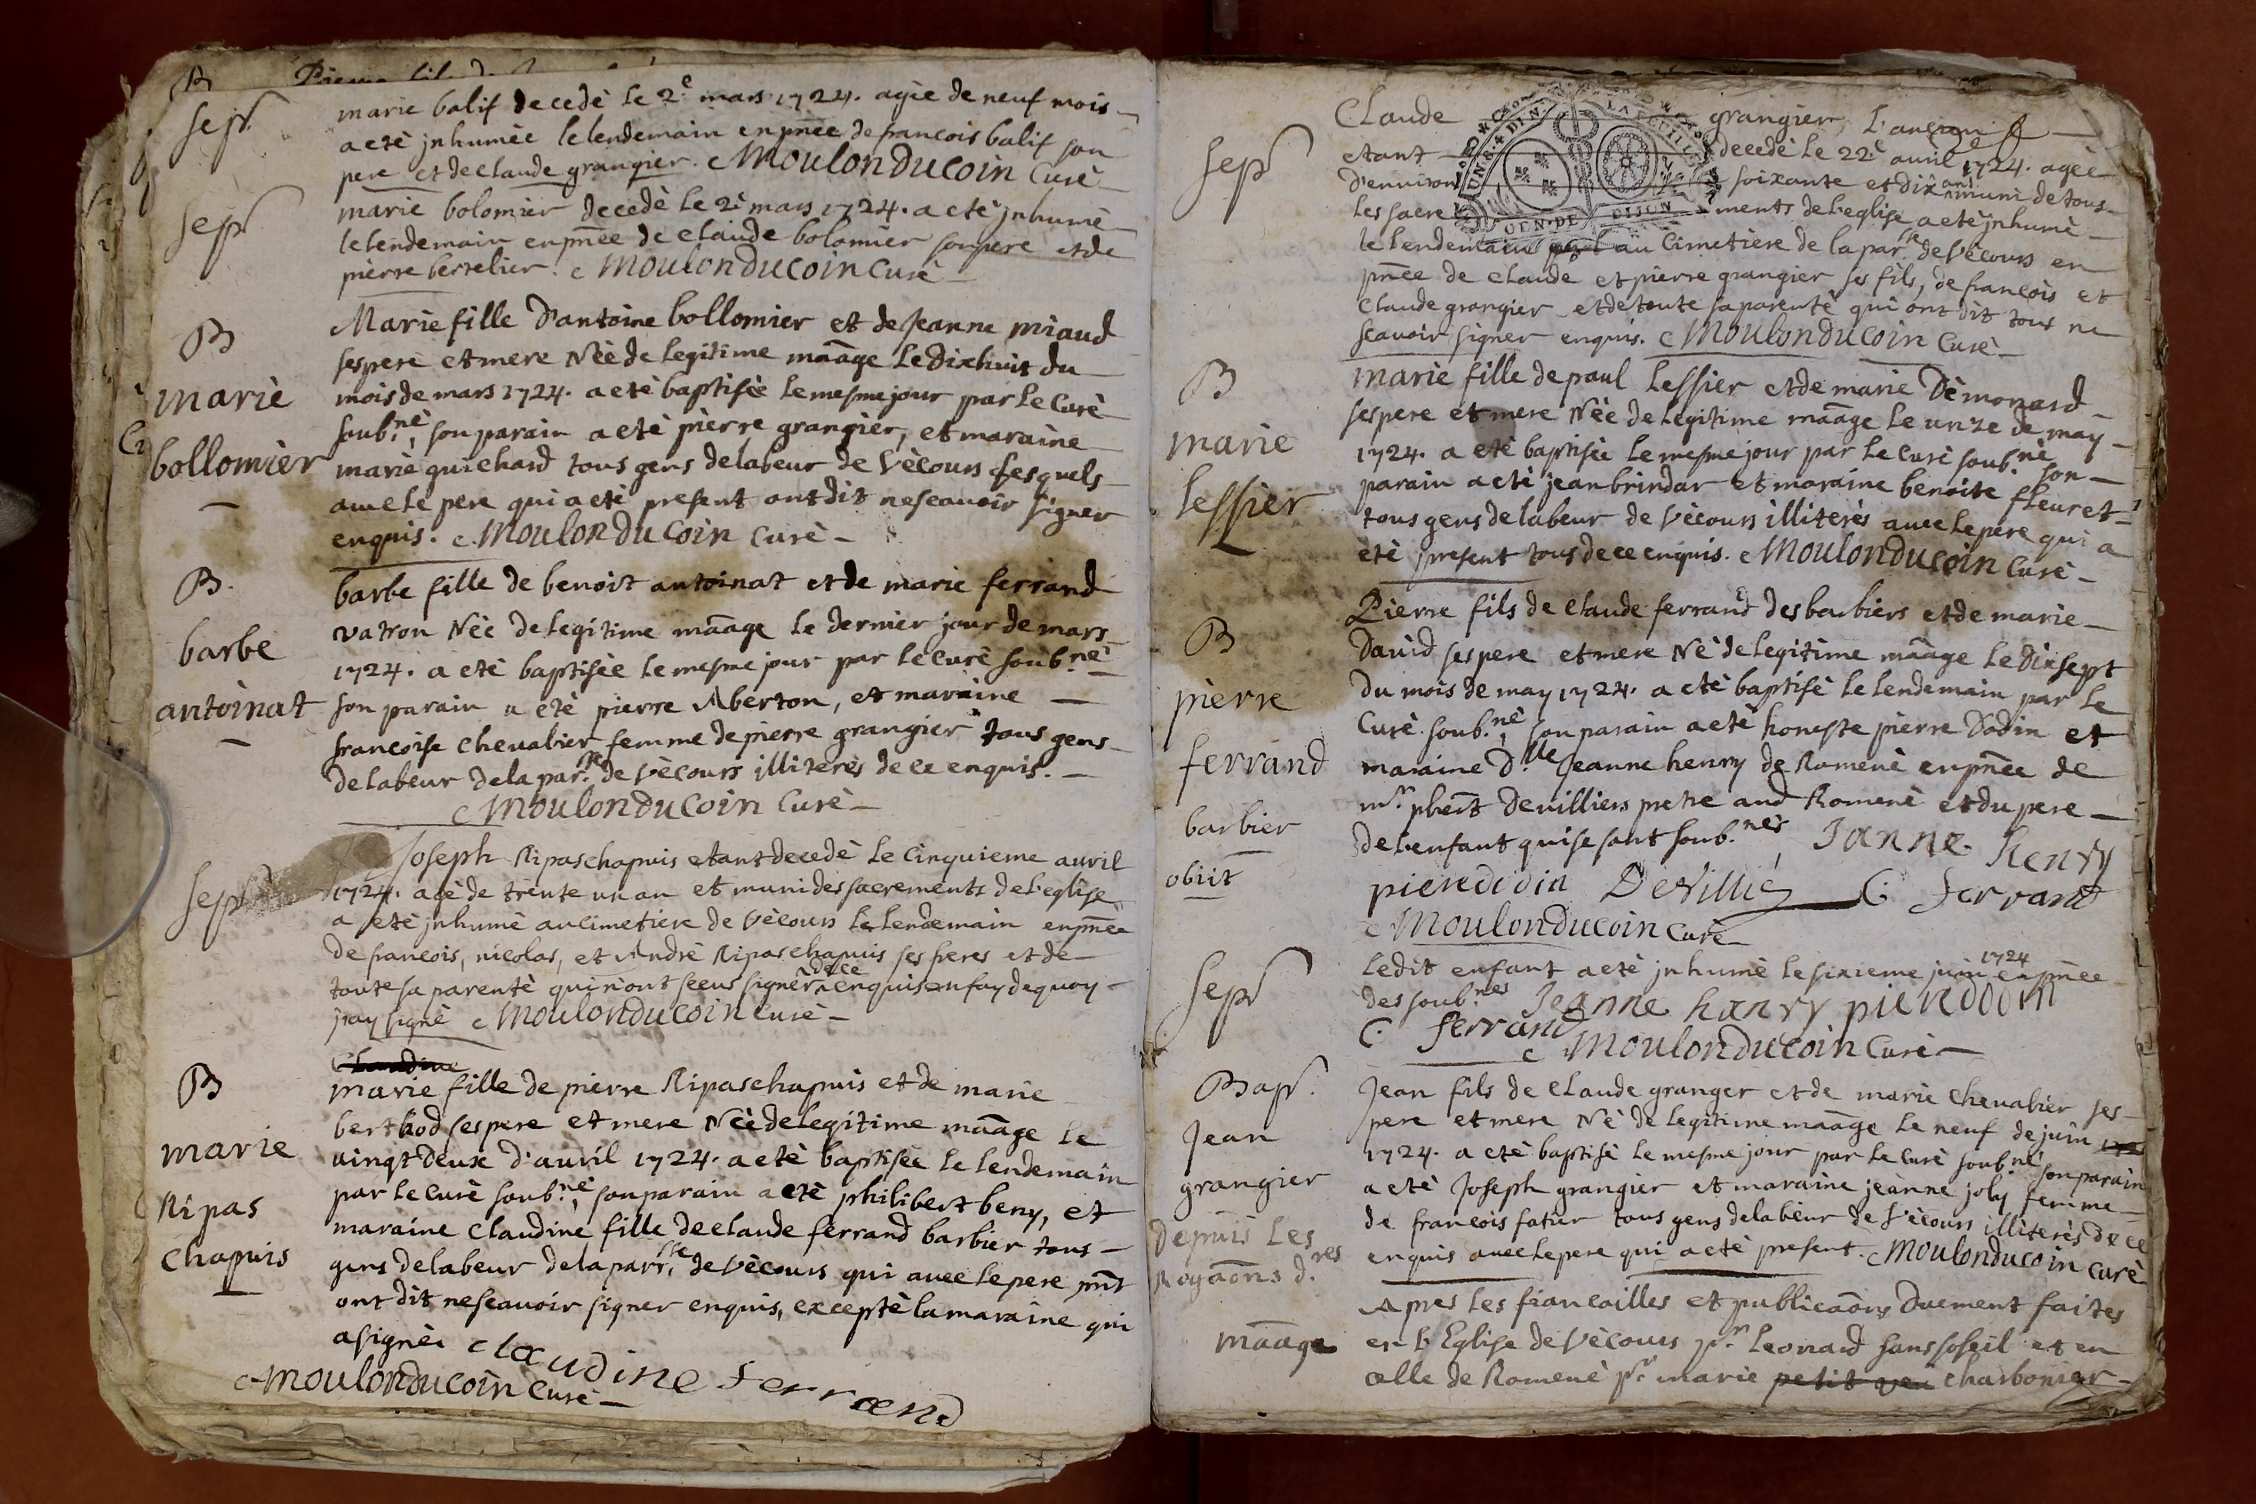 B
Sepr.
marie balif decedè le 2e mars 1724. agée de neuf mois
a etè jnhumèe le lendemain en pñce de francois balif son
pere et de claude grangier. Moulonducoin Curè
Sepr
marie bolomier decedè le 2e mars 1724. a etè jnhumè
le lendemain en pñce de claude bolomier son pere et de
pierre berrelier. Moulonducoin Curè
B
marie
bollomier
Marie fille D'antoine bollomier et de Jeanne miaud
ses pere et mere Nèe de legitime mãage le Dixhuit du
mois de mars 1724. a etè baptisèe le mesme jour par le Curè
soub.né, son parain a etè pierre grangier, et maraine
marie guichard tous gens de labeur de Vècours lesquels
avec le pere qui a etè present ont dit ne scavoir signer
enquis. Moulonducoin Curè
B.
barbe
antoinat
barbe fille de benoit antoinat et de marie ferrand
vatron Nèe de legitime mãage le dernier jour de mars
1724. a etè baptisèe le mesme jour par le Curè soub.né
son parain a etè pierre Aberton, et maraine
francoise chevalier femme de pierre grangier tous gens
de labeur de la par.sse de Vècours illiterès de ce enquis.
Moulonducoin Curè
Sepr
Joseph Ripaschapuis etant decedè le Cinquieme avril
1724. agè de trente un an et muni des sacrements de l'eglise
a etè jnhumè au cimetiere de Vècours le lendemain en pñce
de francois, nicolas, et andrè Ripaschapuis ses freres et de
toute sa parentè qui n'ont sceus signer de ce enquis en foy de quoy
j'ay signè Moulonducoin Curè
B
marie
Ripas
Chapuis
Claudine
marie fille de pierre Ripaschapuis et de marie
berthod ses pere et mere Nèe de legitime mãage le
vingt deux d'avril 1724. a etè baptisèe le lendemain
par le Curè soub.né, son parain a etè philibert beny, et
maraine Claudine fille de claude ferrand barbier tous
gens de labeur de la parr.sse de Vècours qui avec le pere pnt
ont dit ne scavoir signer enquis, exceptè la maraine qui
a signèe claudine ferrand
Moulonducoin Curè
Sepr
Claude grangier, L'ancien
etant decedè le 22e avril 1724. agèe
D'environ soixante et dix ans muni de tous
les sacrements de l'eglise a etè jnhumè
le lendemain au Cimetiere de la par.sse de Vècours en
pñce de claude et pierre grangier ses fils, de francois et
claude grangier et de toute sa parentè qui ont dit tous ne
scavoir signer enquis. Moulonducoin Curè
B
marie
lessier
marie fille de paul lessier et de marie Dèmonard
ses pere et mere Nèe de legitime mãage le unze de may
1724. a etè baptisèe le mesme jour par le Curè soub.né son
parain a etè jean brindar et maraine benoite fleuret
tous gens de labeur de Vècours illiterès avec le pere qui a
etè present tous de ce enquis. Moulonducoin Curè
B
pierre
ferrand
barbier
obiit
Pierre fils de claude ferrand des barbiers et de marie
David ses pere et mere Nè de legitime mãage le Dixsept
du mois de may 1724. a etè baptisè le lendemain par le
Curè soub.né, son parain a etè honeste pierre Dodin et
maraine d.lle Jeanne henry de Romenè en pñce de
mr phbert Devilliers pretre aud Romenè et du pere
de l'enfant qui se sont soub.nés Janne Henry
piere dodin DeVillié C. ferrand
Moulonducoin Curè
Sepr
Ledit enfant a etè jnhumè le sixieme juin 1724 en pñce
des soub.nés Jeanne hanry piere dodin
C. ferrand
Moulonducoin Curè
Bapt.
Jean
grangier
Jean fils de claude granger et de marie chevalier ses
pere et mere Nè de legitime mãage le neuf de juin
1724. a etè baptisè le mesme jour par le Curè soub.né son parain
a etè Joseph grangier et maraine jeanne joly femme
de francois fatier tous gens de labeur de Vècours illiterès de ce
enquis avec le pere qui a etè present. Moulonducoin Curè
Depuis les
Rogaõns d.res
mãage
Apres les fiancailles et publicaõns Duement faites
en l'Eglise de Vècours pr. Leonard sanssoseil et en
celle de Romenè pr marie petit veu charbonier